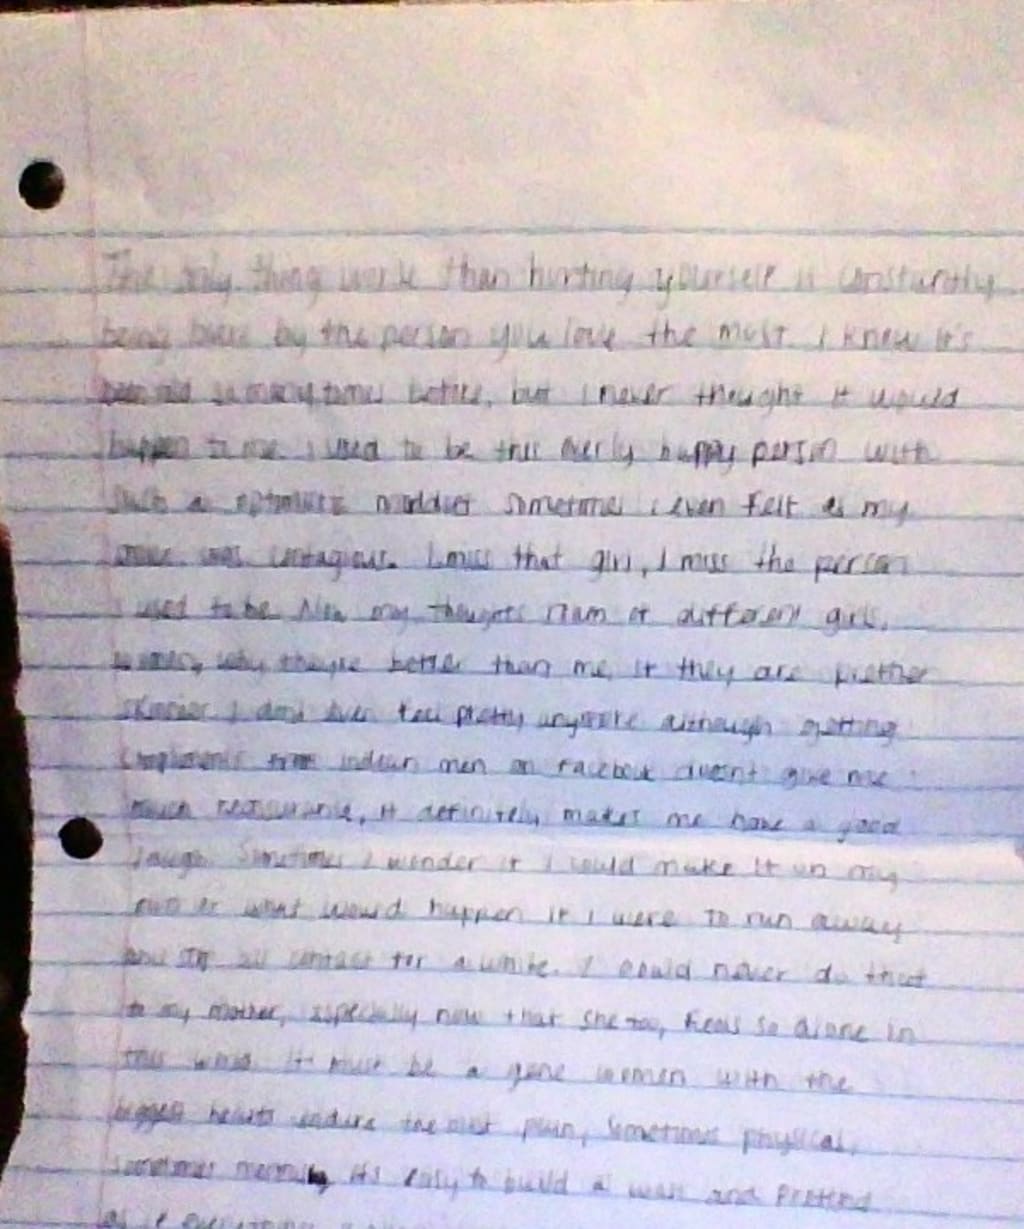 The only thing worse than hurting yourself is constantly
being by the person you love the most. I knew it's
so many times before, but I never thought it would
happen to me. I used to be this overly happy person with
such a mindset sometimes i even felt as my
was contagious. I miss that girl, I miss the person
I used to be. Now my thoughts of different girls,
why they're better than me, if they are prettier
skinnier I dont even feel pretty anymore although getting
compliments from indian men on Facebook doesnt give me
much reassurance, it definitely makes me have a good
laugh. Sometimes I wonder if I could make it on my
own or what would happen if I were to run away
and all contact for a while. I could never do that
to my mother, especially now that she too, feels so alone in
this world. It must be a gene women with the
biggest hearts endure the most pain, sometimes physical,
sometimes its easy to build a wall and pretend
as if everything